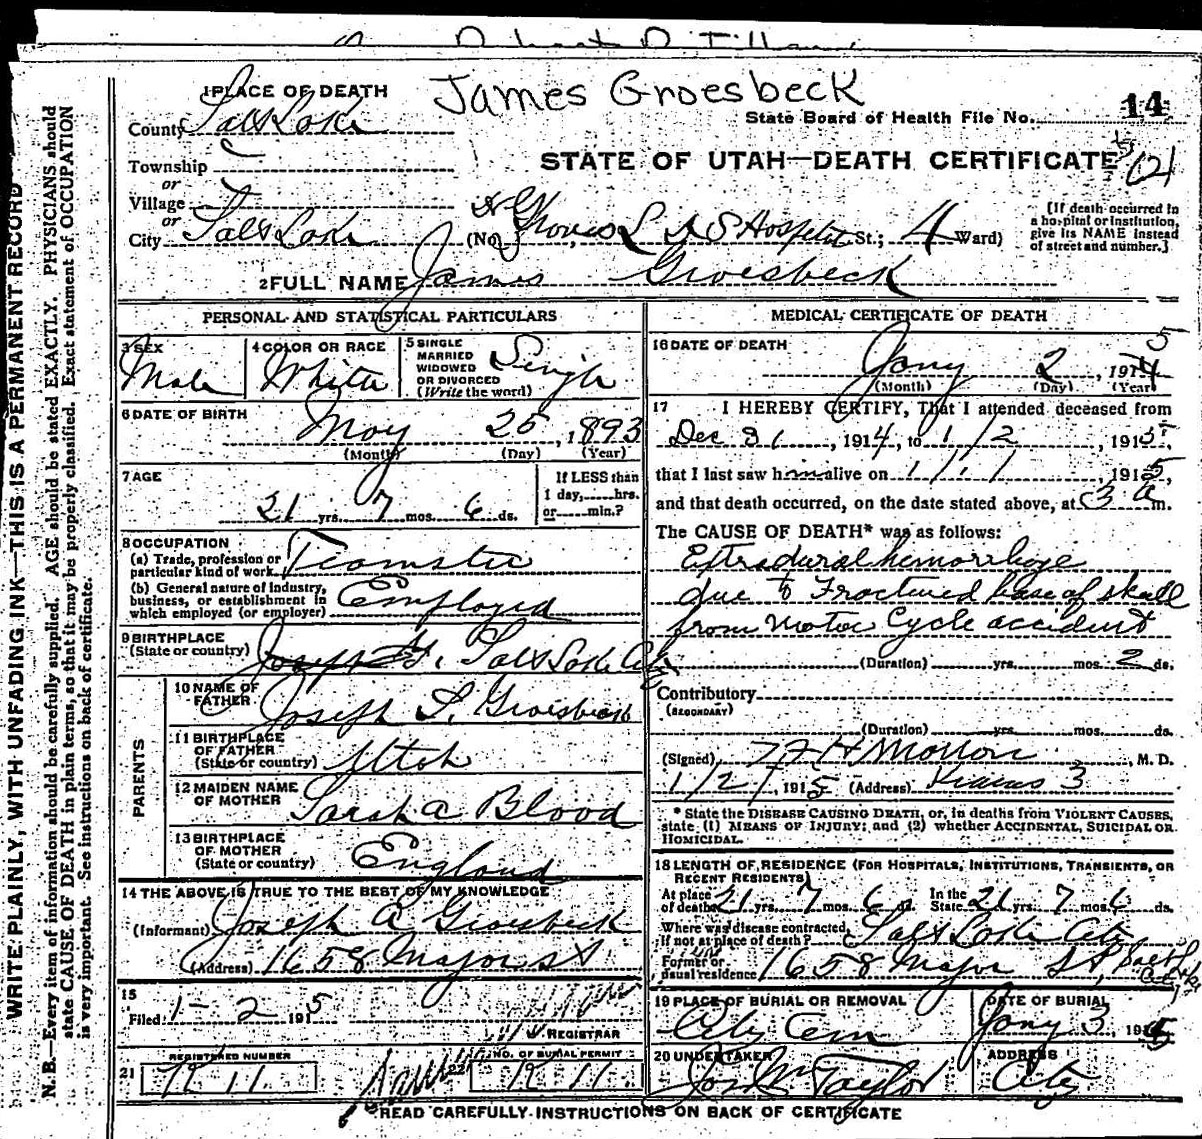 James Groesbeck
1 PLACE OF DEATH
County Salt Lake
State Board of Health File No. 14
Township
or
Village
or
City Salt Lake
STATE OF UTAH—DEATH CERTIFICATE
(No. Groves L D S Hospital St.; 4 Ward)
[If death occurred in
a hospital or institution,
give its NAME instead
of street and number.]
2 FULL NAME James Groesbeck
PERSONAL AND STATISTICAL PARTICULARS
3 SEX
Male
4 COLOR OR RACE
White
5 SINGLE
MARRIED
WIDOWED
OR DIVORCED
(Write the word)
Single
6 DATE OF BIRTH
May 25, 1893
(Month) (Day) (Year)
7 AGE
21 yrs. 7 mos. 6 ds.
If LESS than
1 day, hrs.
or min.?
8 OCCUPATION
(a) Trade, profession or
particular kind of work Teamster
(b) General nature of industry,
business, or establishment in
which employed (or employer) Employed
9 BIRTHPLACE
(State or country) Salt Lake City
PARENTS
10 NAME OF
FATHER Joseph S. Groesbeck
11 BIRTHPLACE
OF FATHER
(State or country) Utah
12 MAIDEN NAME
OF MOTHER Sarah A Blood
13 BIRTHPLACE
OF MOTHER
(State or country) England
14 THE ABOVE IS TRUE TO THE BEST OF MY KNOWLEDGE
(Informant) Joseph A Groesbeck
(Address) 1658 Major St
15
Filed 1-2 1915
REGISTRAR
REGISTERED NUMBER
21 K 11
NO. OF BURIAL PERMIT
22 K 11
MEDICAL CERTIFICATE OF DEATH
16 DATE OF DEATH
Jany 2, 1915
(Month) (Day) (Year)
17 I HEREBY CERTIFY, That I attended deceased from
Dec 31, 1914, to 1/2, 1915,
that I last saw him alive on 1/1/, 1915,
and that death occurred, on the date stated above, at 3 a m.
The CAUSE OF DEATH* was as follows:
Extradural hemorrhage
due to Fractured base of skull
from Motor Cycle accident
(Duration) yrs. mos. 2 ds.
Contributory
(SECONDARY)
(Duration) yrs. mos. ds.
(Signed), M. D.
1/2/, 1915 (Address)
* State the DISEASE CAUSING DEATH, or, in deaths from VIOLENT CAUSES,
state (1) MEANS OF INJURY; and (2) whether ACCIDENTAL, SUICIDAL OR
HOMICIDAL.
18 LENGTH OF RESIDENCE (FOR HOSPITALS, INSTITUTIONS, TRANSIENTS, OR
RECENT RESIDENTS)
At place
of death 21 yrs. 7 mos. 6 ds. In the
State 21 yrs. 7 mos. 6 ds.
Where was disease contracted,
if not at place of death? Salt Lake City
Former or
usual residence 1658 Major St, Salt L City
19 PLACE OF BURIAL OR REMOVAL
City Cem
DATE OF BURIAL
Jany 3, 1915
20 UNDERTAKER
Jos Wm Taylor
ADDRESS
City
READ CAREFULLY INSTRUCTIONS ON BACK OF CERTIFICATE
WRITE PLAINLY, WITH UNFADING INK—THIS IS A PERMANENT RECORD
N. B.—Every item of information should be carefully supplied. AGE should be stated EXACTLY. PHYSICIANS should
state CAUSE OF DEATH in plain terms, so that it may be properly classified. Exact statement of OCCUPATION
is very important. See instructions on back of certificate.